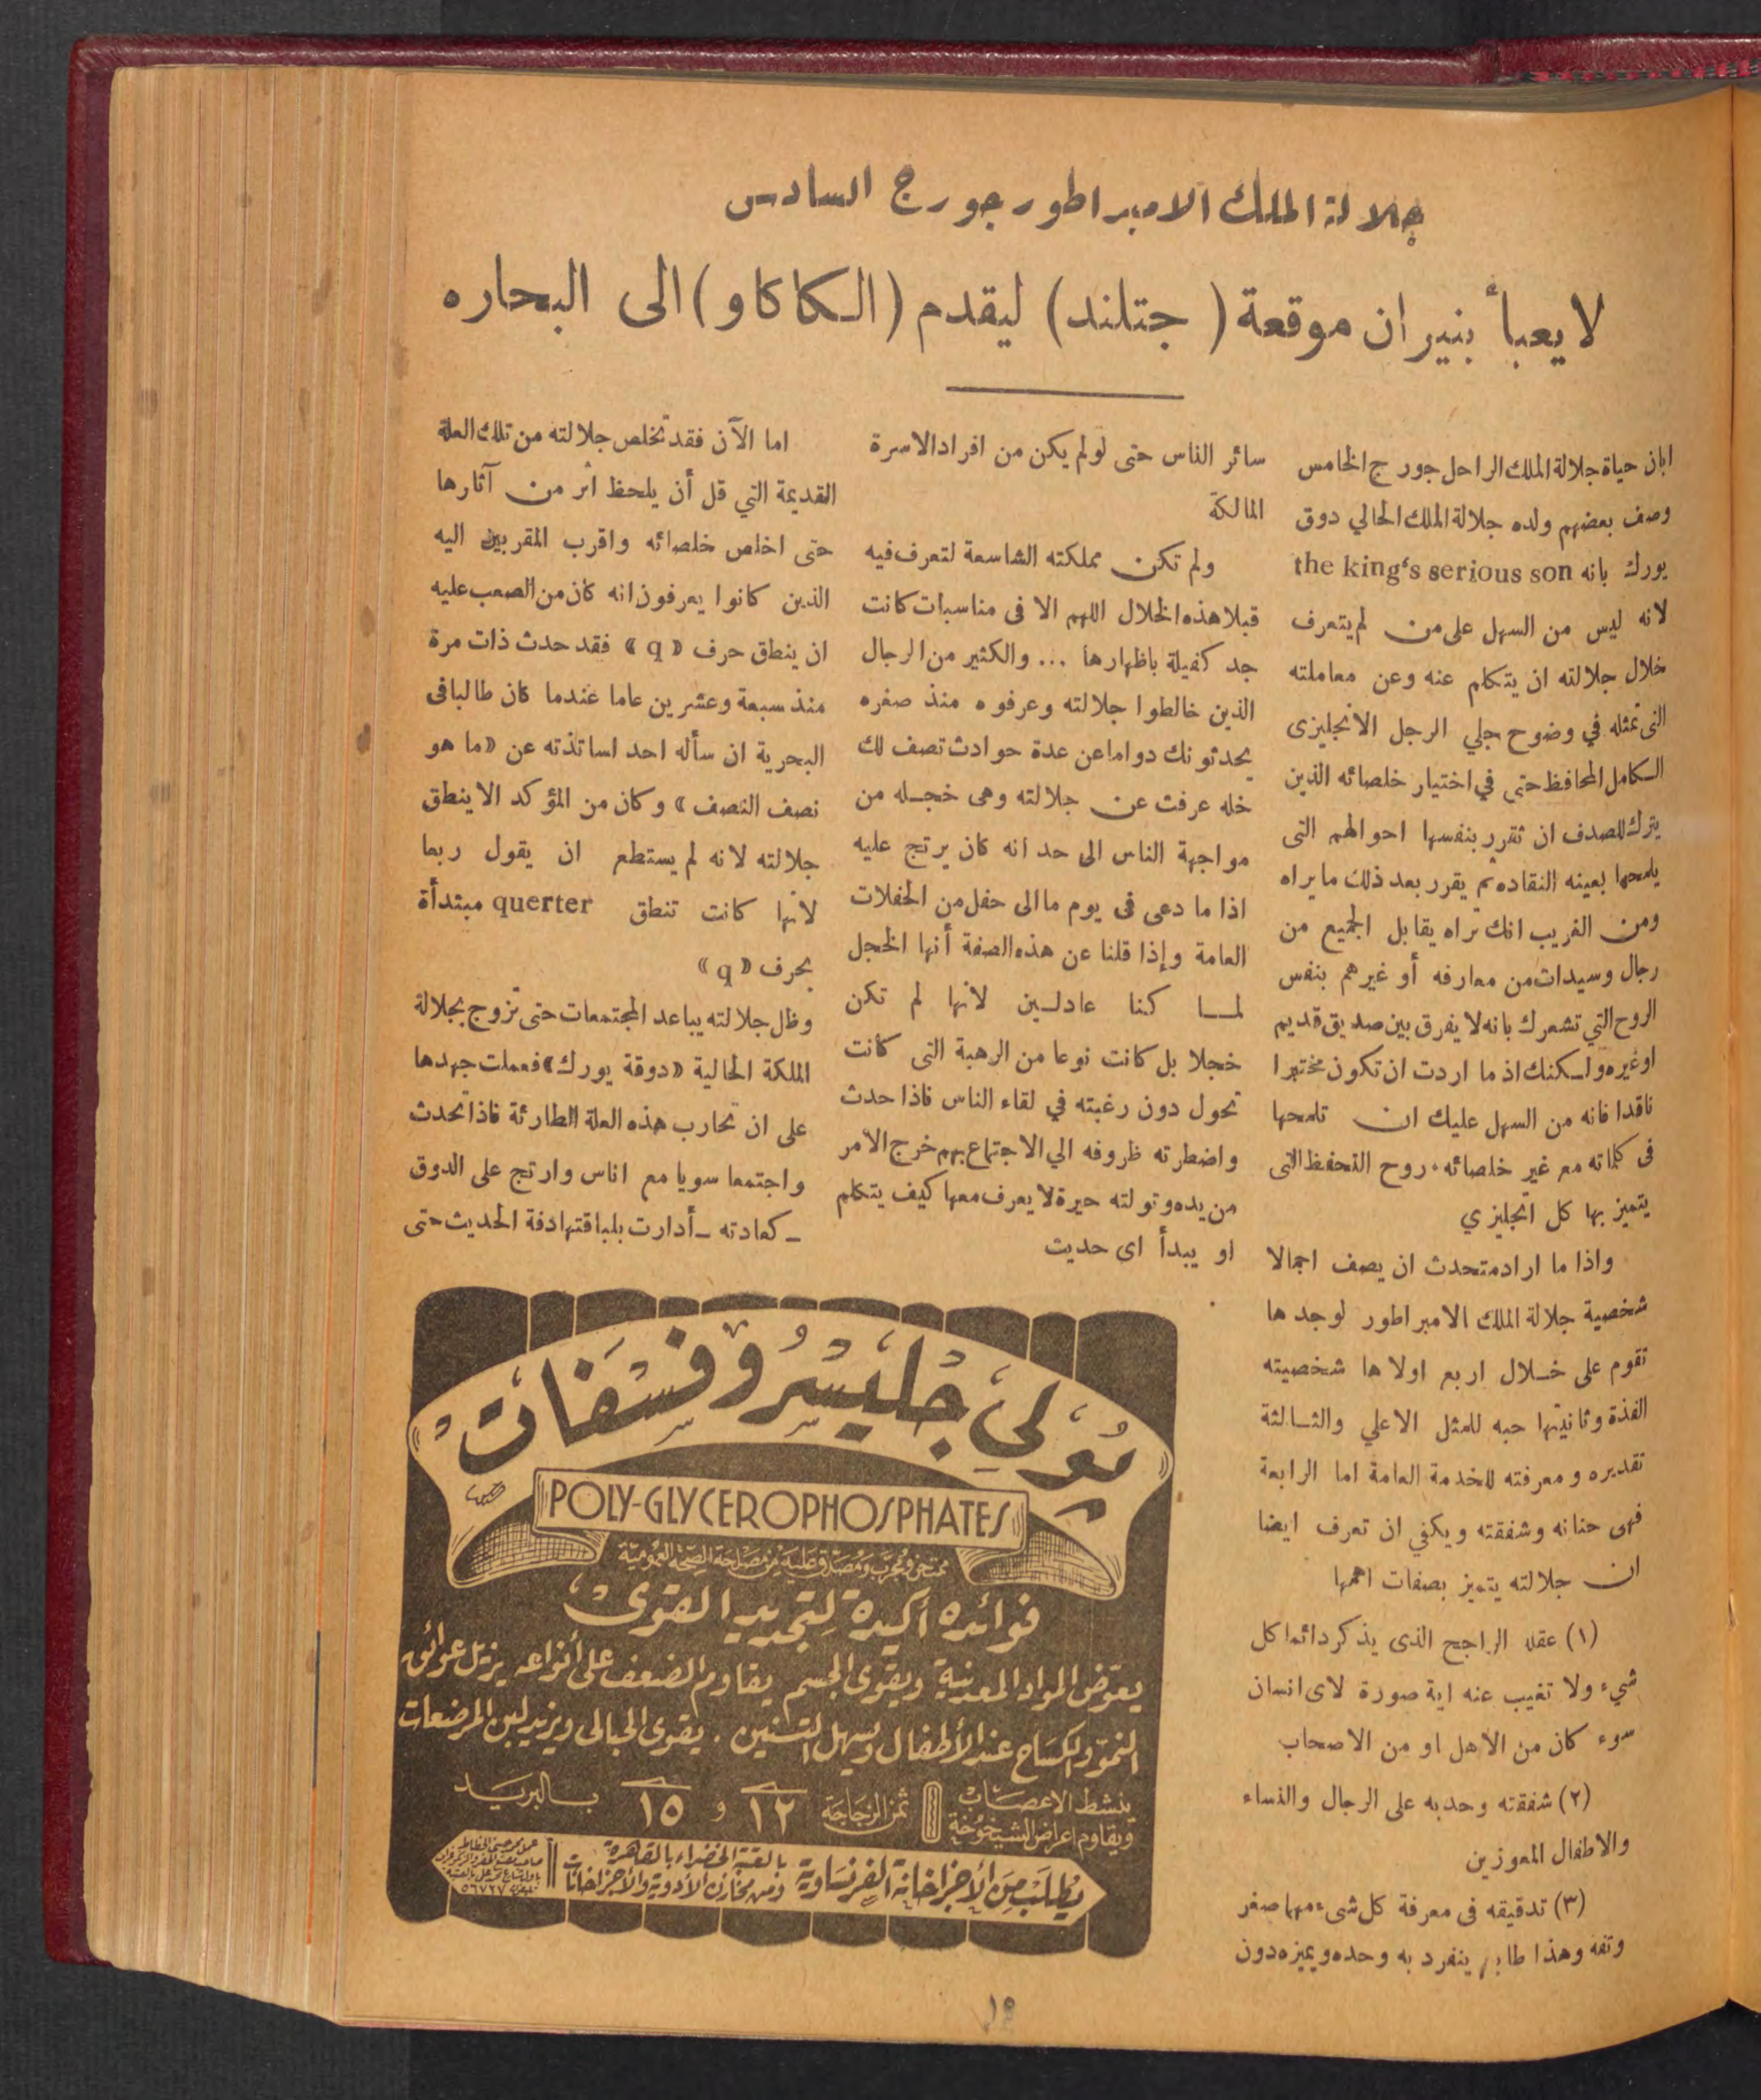 جلالة الملك الامبراطور جورج السادس
لا يعبأ بنيران موقعة ( جتلند ) ليقدم ( الكاكاو ) الى البحاره
ابان حياة جلالة الملك الراحل جورج الخامس
وصف بعضهم ولده جلالة الملك الحالي دوق
يورك بانه the king‘s serious son
لانه ليس من السهل على من لم يتعرف
خلال جلالته ان يتكلم عنه وعن معاملته
التى تمثله في وضوح جلي الرجل الانجليزى
الكامل المحافظ حتى في اختيار خلصائه الذين
يترك للصدف ان تقرر بنفسها احوالهم التى
يلمحها بعينه النقاده ثم يقرر بعد ذلك ما يراه
ومن الغريب انك تراه يقابل الجميع من
رجال وسيدات من معارفه أو غيرهم بنفس
الروح التي تشعرك بانه لا يفرق بين صديق قديم
او غيره ولكنك اذ ما اردت ان تكون مختبرا
ناقدا فانه من السهل عليك ان تلمحها
فى كلماته مع غير خلصائه. روح التحفظ التى
يتميز بها كل انجليزي
واذا ما اراد متحدث ان يصف اجمالا
شخصية جلالة الملك الامبراطور لوجدها
تقوم على خلال اربع اولاها شخصيته
الفذة وثانيتها حبه للمثل الاعلي والثالثة
تقديره ومعرفته للخدمة العامة اما الرابعة
فهى حنانه وشفقته ويكفي ان تعرف ايضا
ان جلالته يتميز بصفات اهمها
(١) عقله الراجح الذى يذكر دائما كل
شيء ولا تغيب عنه اية صورة لاى انسان
سوء كان من الاهل او من الاصحاب
(٢) شفقته وحدبه على الرجال والنساء
والاطفال المعوزين
(٣) تدقيقه فى معرفة كل شىء مهما صغر
وتفه وهذا طابع ينفرد به وحده ويميزه دون
سائر الناس حتى لو لم يكن من افراد الاسرة
المالكة
ولم تكن مملكته الشاسعة لتعرف فيه
قبلا هذه الخلال اللهم الا فى مناسبات كانت
جد كفيلة باظهارها ... والكثير من الرجال
الذين خالطوا جلالته وعرفوه منذ صغره
يحدثونك دواما عن عدة حوادث تصف لك
خله عرفت عن جلالته وهى خجله من
مواجهة الناس الى حد انه كان يرتج عليه
اذا ما دعى فى يوم ما الى حفل من الحفلات
العامة وإذا قلنا عن هذه الصفة أنها الخجل
لما كنا عادلين لانها لم تكن
خجلا بل كانت نوعا من الرهبة التى كانت
تحول دون رغبته في لقاء الناس فاذا حدث
واضطرته ظروفه الي الاجتماع بهم خرج الامر
من يده وتولته حيرة لا يعرف معها كيف يتكلم
او يبدأ اى حديث
اما الآن فقد تخلص جلالته من تلك العلة
القديمة التي قل أن يلحظ اثر من آثارها
حتى اخلص خلصائه واقرب المقربين اليه
الذين كانوا يعرفون انه كان من الصعب عليه
ان ينطق حرف « q » فقد حدث ذات مرة
منذ سبعة وعشرين عاما عندما كان طالبا فى
البحرية ان سأله احد اساتذته عن «ما هو
نصف النصف » وكان من المؤكد الا ينطق
جلالته لانه لم يستطع ان يقول ربعا
لانها كانت تنطق querter مبتدأة
بحرف « q »
وظل جلالته يباعد المجتمعات حتى تزوج بجلالة
الملكة الحالية «دوقة يورك» فعملت جهدها
على ان تحارب هذه العلة الطارئة فاذا تحدث
واجتمعا سويا مع اناس وارتج على الدوق
ـ كعادته ـ أدارت بلباقتها دفة الحديث حتى
پُولي جليسروفسفات
POLY-GLYCEROPHOSPHATES
ممتحن ومجرّب ومصدّق عليه من مصلحة الصحة العمومية
فوائده أكيدة لتجديد القوى
يعوّض المواد المعدنية ويقوى الجسم يقاوم الضعف على أنواعه يزيل عوائق
النموّ والكساح عند الأطفال ويسهل التسنين . يقوى الحبالى ويزيد لبن المرضعات
ينشط الاعصاب
ويقاوم اعراض الشيخوخة
ثمن الزجاجة ١٢ و ١٥ بالبريد
يُطلب من الأجزاخانة الفرنساوية بالعتبة الخضراء بالقاهرة
ومن مخازن الأدوية والأجزاخانات
١٩